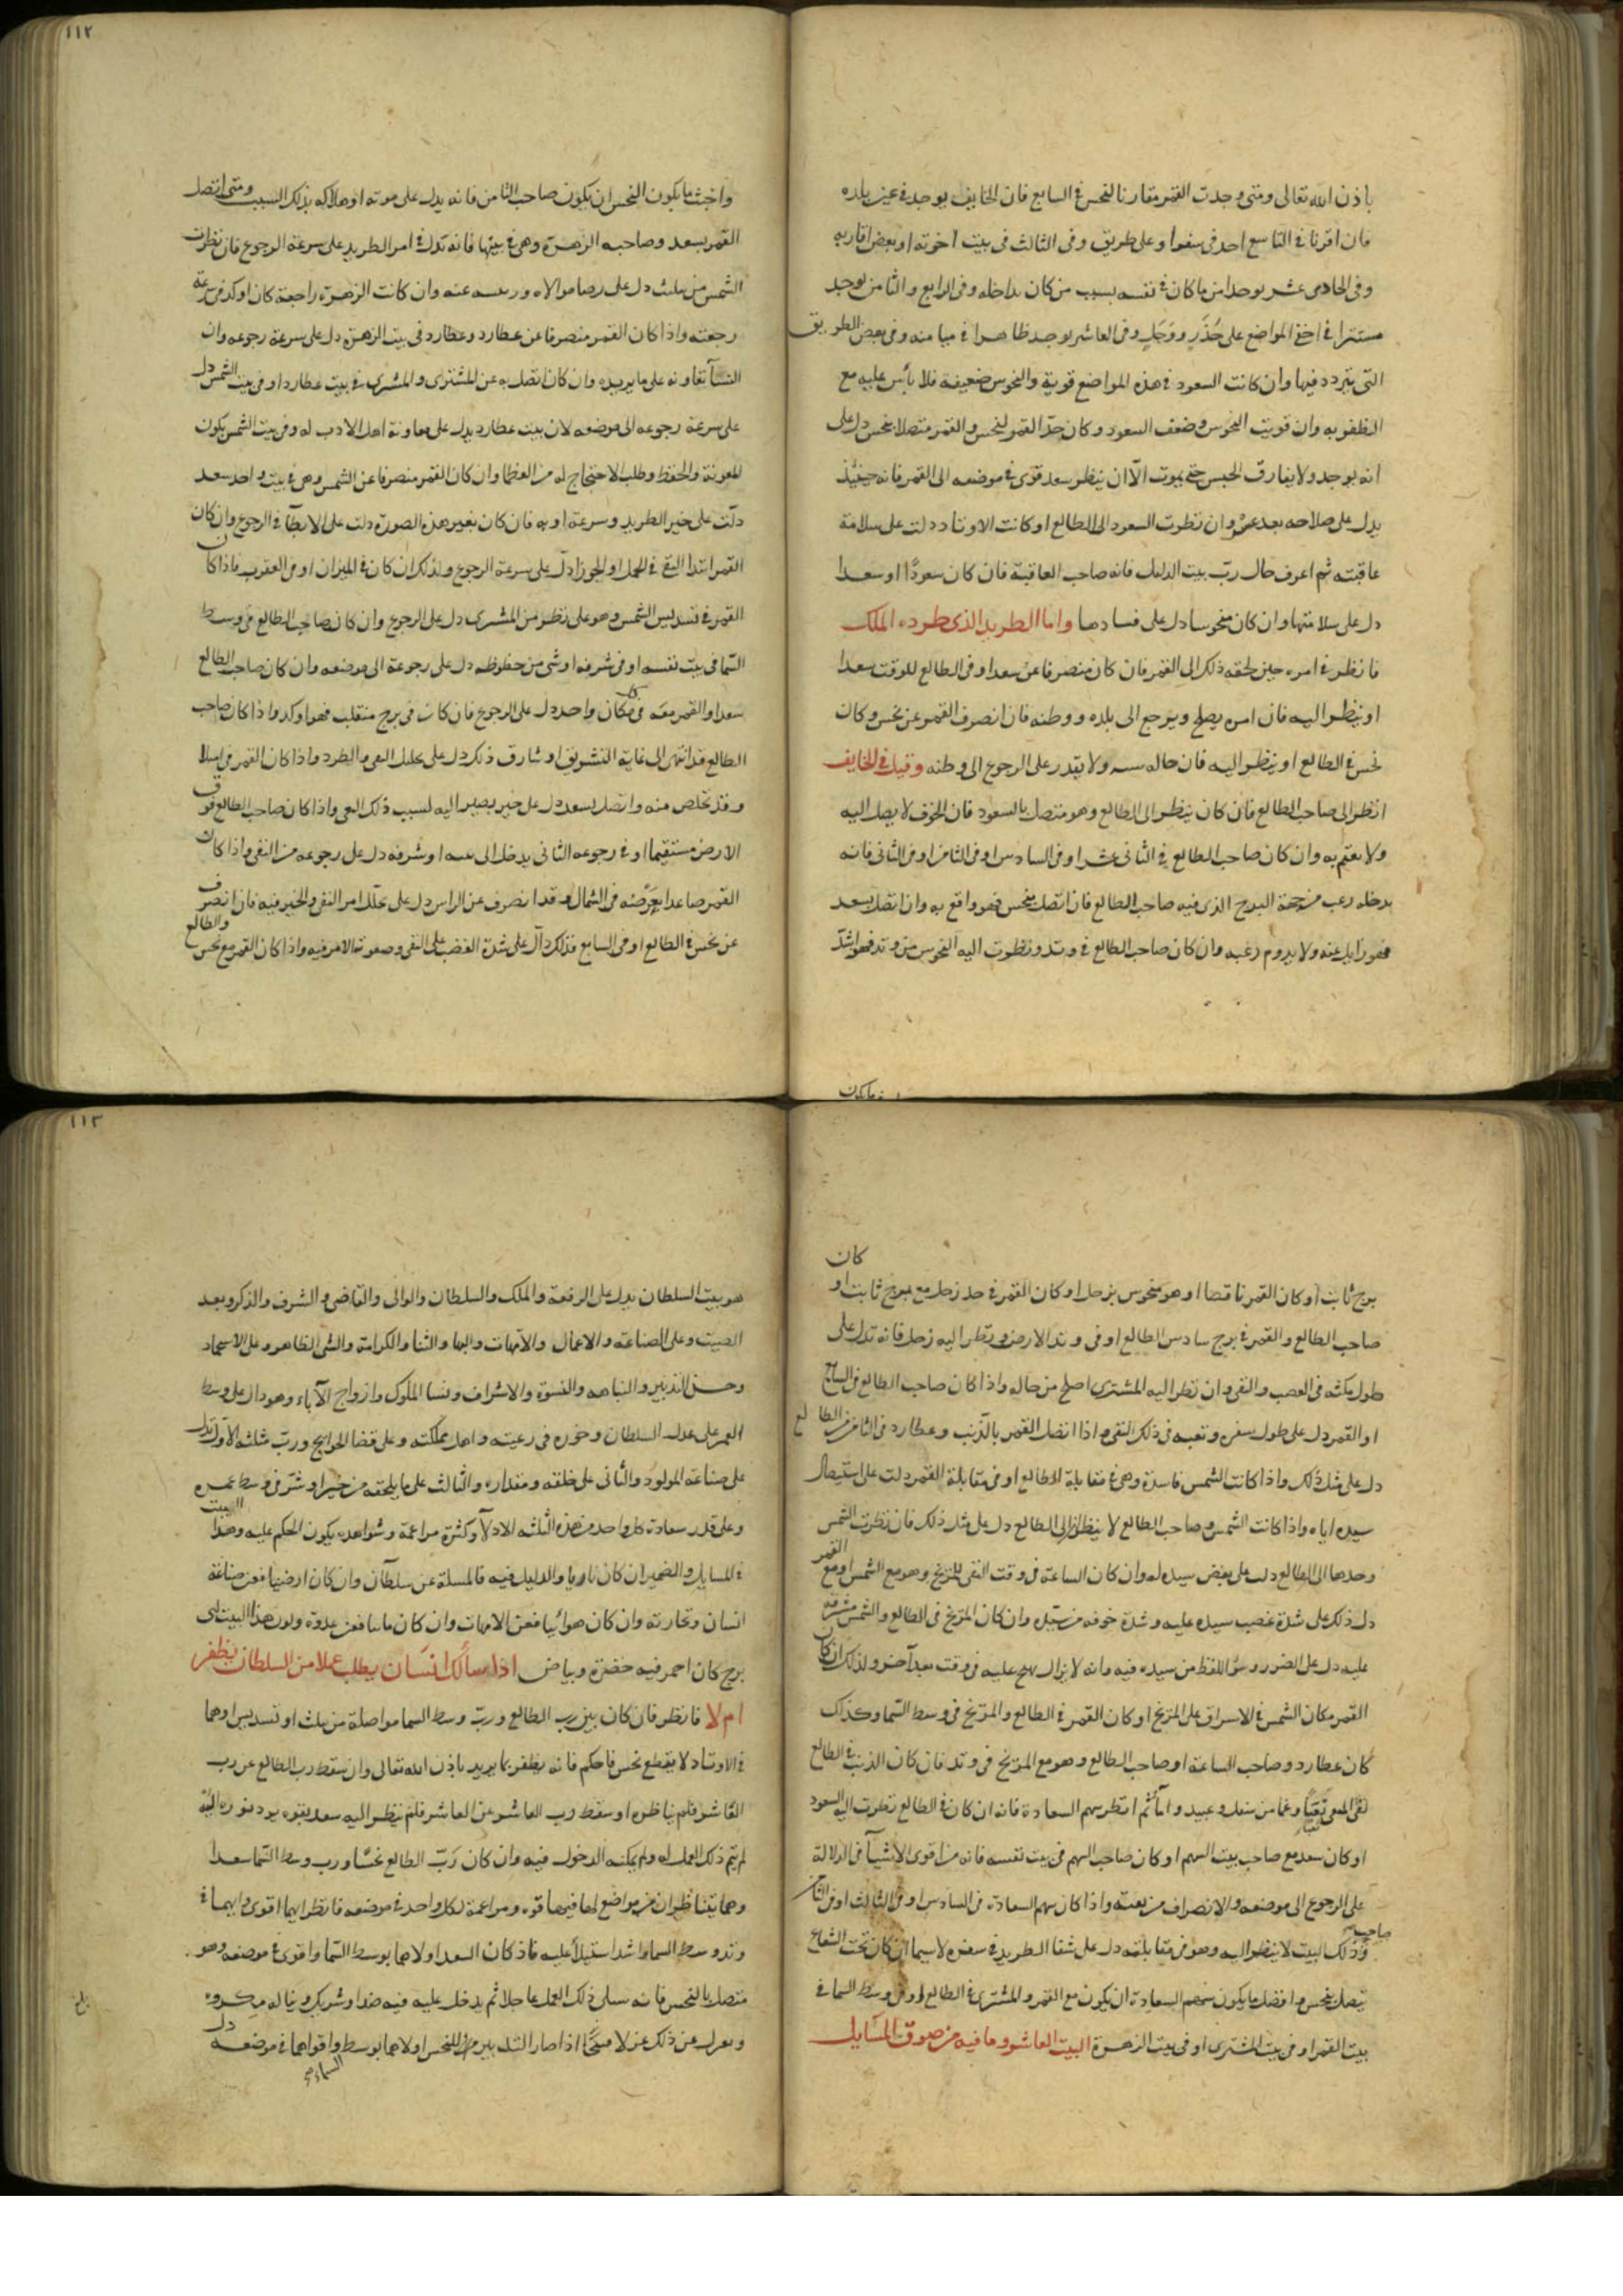 باذن الله تعالى ومتى وجدت القمر مقارنا لنحس في السابع فان الخايف يوجد في غير بلده
فان اقرنا في التاسع احد في سفر او على طريق وفى الثالث في بيت اخوته او بعض اقاربه
وفى الحادى عشر يوجد امن ما كان في نفسه بسبب من كان بداخله وفى الرابع والثامن يوجد
مستترا في اخفى المواضع على حذر ووجل وفى العاشر يوجد ظاهرا في وفى بعض الطريق
التى يتردد فيها وان كانت السعود في هذه المواضع قوية والنحوس ضعيفة فلا بأس عليه مع
الظفر به وان قويت النحوس وضعف السعود وكان حد القمر لنحس والقمر متصلا بنحس دل على
انه يوجد ولا يفارق الحبس حتى يموت الا ان ينظر سعد قوى في موضعه الى القمر فانه حينئذ
يدل على صلاحه بعد عسر وان نظرت السعود الى الطالع او كانت الاوتاد دلت على سلامة
عاقبته ثم اعرف حال رب بيت الدليل فانه صاحب العاقبة فان كان سعودا او سعدا
دل على سلامتها وان كان منحوسا دل على فسادها واما الطريد الذى طرده الملك
فانظر في امره حين لحقه ذلك الى القمر فان كان منصرفا عن سعد او في الطالع للوقت سعدا
او ينظر اليه فان امره يصلح ويرجع الى بلده ووطنه فان انصرف القمر عن نحس وكان
نحس في الطالع او ينظر اليه فان حاله ولا يقدر على الرجوع الى وطنه وقيل في الخايف
انظر الى صاحب الطالع فان كان ينظر الى الطالع وهو متصل بالسعود فان الخوف لا يصل اليه
ولا يغتم به وان كان صاحب الطالع في الثانى عشر او في السادس او في الثامن او في الثانى فانه
يدخله رعب من جهة البرج الذى فيه صاحب الطالع فان اتصل بنحس فهو واقع به وان اتصل بسعد
فهو زايل عنه ولا يدوم رعبه وان كان صاحب الطالع في وتد ونظرت اليه النحوس من وتد فهو اشد
ما يكون
١١٢
واخبث ما يكون النحس ان يكون صاحب الثامن فانه يدل على موته او هلاكه بذلك السبب ومتى اتصل
القمر بسعد وصاحبه الزهرة وهى في بيتها فانه تدل في امر الطريد على سرعة الرجوع فان نظرت
الشمس من مثلث دل على رضا مولاه عنه وان كانت الزهرة راجعة كان اوكد في سرعة
رجعته واذا كان القمر منصرفا عن عطارد وعطارد في بيت الزهرة دل على سرعة رجوعه وان
النسآ تعاونه على ما يريده وان كان اتصل به عن المشترى والمشترى في بيت عطارد او في بيت الشمس دل
على سرعة رجوعه الى موضعه لان بيت عطارد يدل على معاونة اهل الادب له وفى بيت الشمس يكون
المعونة والحفظ وطلب الاحتجاج له من العظما وان كان القمر منصرفا عن الشمس وهى في بيت واحد سعد
دلت على خير الطريد وسرعة اوبه فان كان بغير هذه الصورة دلت على الابطآ في الرجوع وان كان
القمر ابتدا النفى في الحمل او الجوزا دل على سرعة الرجوع وكذلك ان كان في الميزان او في العقرب فاذا كان
القمر في تسديس الشمس وهو على نظر من المشترى دل على الرجوع وان كان صاحب الطالع في وسط
السما في بيت نفسه او في شرفه او شى من حظوظه دل على رجوعه الى موضعه وان كان صاحب الطالع
سعدا والقمر معه في مكان واحد دل على الرجوع فان كان في برج منقلب فهو اوكد واذا كان صاحب
الطالع قد انتهى الى غاية التشريق او شارف ذلك دل على تحليل النفى والطرد واذا كان القمر
وقد تخلص منه واتصل بسعد دل على خير يصير اليه لسبب ذلك النفى واذا كان صاحب الطالع فوق
الارض مستقيما او في رجوعه الثانى يدخل الى بيته او شرفه دل على رجوعه من النفى واذا كان
القمر صاعدا بعرضه في الشمال وقد انصرف عن الراس دل على تحلل امر النفى والخير فيه فان انصرف
عن نحس في الطالع او في السابع فذلك دآل على شدة الغضب على النفى وصعوبة الامر فيه واذا كان القمر مع نحس والطالع
١١٣
كان
برج ثابت او كان القمر ناقصا او هو منحوس بزحل او كان القمر في حد زحل مع برج ثابت او
صاحب الطالع والقمر في برج سادس الطالع او في وتد الارض ونظر اليه زحل فانه تدل على
طول مكثه في الغضب والنفى وان نظر اليه المشترى اصلح من حاله واذا كان صاحب الطالع في السابع
او القمر دل على طول سفره وتعبه في ذلك النفى واذا اتصل القمر بالذنب وعطارد في الثامن من الطالع
دل على مثل ذلك واذا كانت الشمس فاسدة وهى في مقابلة الطالع او في مقابلة القمر دلت على استيصال
سيده اياه واذا كانت الشمس وصاحب الطالع لا ينظر الى الطالع دل على مثل ذلك فان نظرت الشمس
وحدها الى الطالع دلت على بغض سيده له وان كان الساعة في وقت النفى للمريخ وهو مع الشمس او مع القمر
دل ذلك على شدة غضب سيده عليه وشدة خوفه من سيده وان كان المريخ في الطالع والشمس مشرفه
عليه دل على الضرر وسؤ اللفظ من سيده فيه وانه لا يزال يهيج عليه في وقت بعد آخر ولذلك ان كان
القمر مكان الشمس في الاشراق على المريخ او كان القمر في الطالع والمريخ في وسط السما وكذلك
كان عطارد وصاحب الساعة او صاحب الطالع وهو مع المريخ في وتد فان كان الذنب في الطالع
لقى المنفى تعبا وغما من سفل وعبيد واما ثم انظر سهم السعادة فانه ان كان في الطالع نظرت اليه السعود
او كان سعد مع صاحب بيت السهم او كان صاحب السهم في بيت نفسه فانه من اقوى الاشيآ في الدلالة
على الرجوع الى موضعه والانصراف من واذا كان سهم السعادة في السادس او في الثالث او في الثامن
وصاحب ذلك البيت لا ينظر اليه وهو في مقابلته دل على شقا الطريد في سفره لا سيما ان كان تحت الشعاع
يتصل بنحس وافضل ما يكون سهم السعادة ان يكون مع القمر والمشترى في الطالع او في وسط السما في
بيت القمر او في بيت المشترى او في بيت الزهرة البيت العاشر وما فيه من صوف المسايل
هو بيت السلطان يدل على الرفعة والملك والسلطان والوالى والقاضى والشرف والذكر وبعد
الصيت وعلى الصناعة والاعمال والامهات والبها والثنا والكرامة والشى الظاهر وعلى الاسحار
وحسن التدبير والنباهه والنسوة والاشراف ونسا الملوك وازواج الآباء وهو دال على وسط
العمر على عدل السلطان وجوره في رعيته واهل مملكته وعلى قضا الحوايج ورب مثلثه الاول تدل
على صناعة المولود والثانى على خلقه ومقداره والثالث على ما يلحقه من خير او شر في وسط عمره
وعلى قدر سعادة كل واحد من هذه الثلثة الادلآ وكثرة مزاعمة وشواهده يكون الحكم عليه وهذا البيت
في المسايل والضمير ان كان ناريا والدليل فيه فالمسلة عن سلطآن وان كان ارضيا فعن صناعة
انسان وتجارته وان كان هوائيا فعن الامهات وان كان مائيا فعن عدوه ولون هذا البيت اى
برج كان احمر فيه خضرة وبياض اذا سألك انسان يطلب عملا من السلطان يظفر
ام لا فانظر فان كان بين رب الطالع ورب وسط السما مواصلة من تثليث او تسديس او هما
في الاوتاد لا يقطع نحس فاحكم فانه يظفر بما يريد باذن الله تعالى وان سقط رب الطالع عن رب
العاشر فلم يناظره او سقط رب العاشر عن العاشر فلم ينظر اليه سعد يقوه يرد نوره اليه
لم يتم ذلك العمل له ولم يمكنه الدخول فيه وان كان رب الطالع نحسا ورب وسط السما سعدا
وهما يتناظران من مواضع لهما فيها قوه ومزاعمة لكل واحد في موضعه فانظر ايهما اقوى وايهما في
وتد وسط السما واشد استيلآ عليه فاذ كان السعد اولاهما بوسط السما واقوى في موضعه وهو
متصل بالنحس فانه ذلك العمل عاجلا ثم يدخل عليه فيه ضد او شريك ويناله مكروه
ويعزل عن ذلك عزلا قبيحا اذا صار التدبير من النحس اولاهما بوسط واقواهما في موضعه دل
السماء صح
بلغ